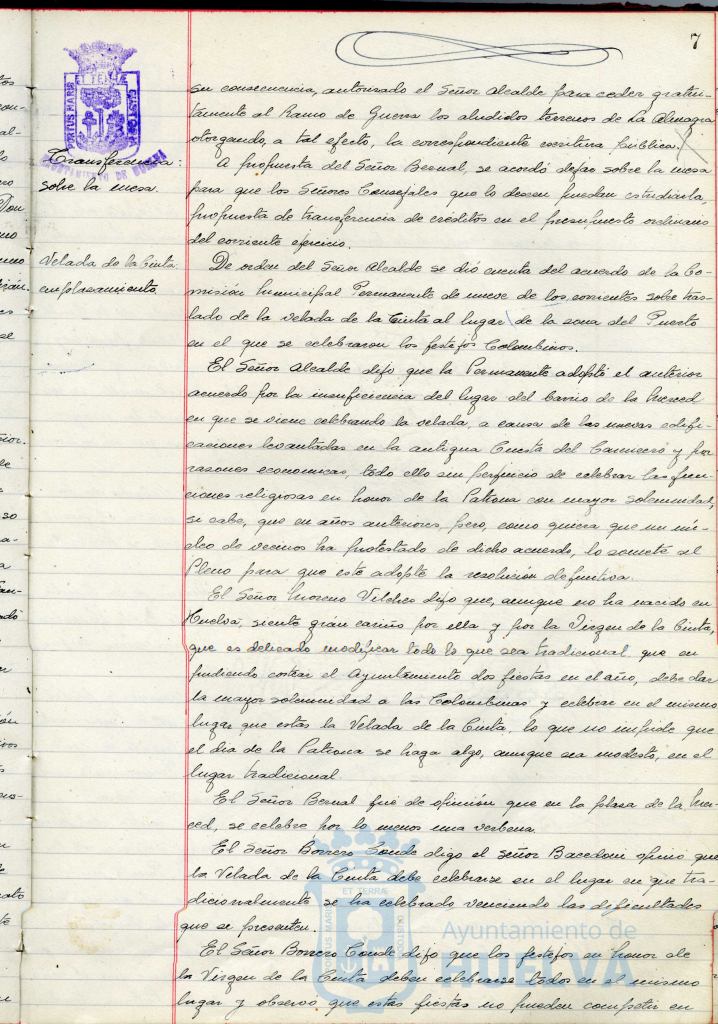 7
su consecuencia, autorizado el Señor Alcalde para ceder gratui-
tamente al Ramo de Guerra los aludidos terrenos de la Almagra
otorgando, a tal efecto, la correspondiente escritura pública.
Transferencia:
sobre la mesa.
A propuesta del Señor Bernal, se acordó dejar sobre la mesa
para que los Señores Concejales que lo deseen puedan estudiarla,
propuesta de transferencia de créditos en el presupuesto ordinario
del corriente ejercicio.
Velada de la Cinta:
emplazamiento.
De orden del Señor Alcalde se dió cuenta del acuerdo de la Co-
misión Municipal Permanente de nueve de los corrientes sobre tras-
lado de la velada de la Cinta al lugar de la zona del Puerto
en el que se celebraron los festejos Colombinos.
El Señor Alcalde dijo que la Permanente adoptó el anterior
acuerdo por la insuficiencia del lugar del barrio de la Merced
en que se viene celebrando la velada, a causa de las nuevas edifi-
caciones levantadas en la antigua Cuesta del Carnicero y por
razones económicas, todo ello sin perjuicio de celebrar las fun-
ciones religiosas en honor de la Patrona con mayor solemnidad,
si cabe, que en años anteriores, pero, como quiera que un nú-
cleo de vecinos ha protestado de dicho acuerdo, lo somete al
Pleno para que este adopte la resolución definitiva.
El Señor Moreno Vilches dijo que, aunque no ha nacido en
Huelva, siente gran cariño por ella y por la Virgen de la Cinta,
que es delicado modificar todo lo que sea tradicional, que en
pudiendo costear el Ayuntamiento dos fiestas en el año, debe dar
la mayor solemnidad a las Colombinas y celebrar en el mismo
lugar que estas la Velada de la Cinta, lo que no impide que
el día de la Patrona se haga algo, aunque sea modesto, en el
lugar tradicional.
El Señor Bernal fué de opinión que en la plaza de la Mer-
ced, se celebre por lo menos una verbena.
El Señor Borrero Conde digo el señor Bacedoni opino que
la Velada de la Cinta debe celebrarse en el lugar en que tra-
dicionalmente se ha celebrado venciendo las dificultades
que se presenten.
El Señor Borrero Conde dijo que los festejos en honor de
la Virgen de la Cinta deben celebrarse todos en el mismo
lugar y observó que estas fiestas no pueden competir en
PORTUS MARIS ET TERRAE CUSTODIA
AYUNTAMIENTO DE HUELVA
PORTUS MARIS ET TERRAE CUSTODIA
Ayuntamiento de
HUELVA